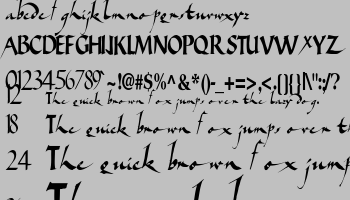 abcdef ghijklmnopqrstuvwxyz
ABCDEFGHIJKLMNOPQRSTUVWXYZ
0123456789 ~!@#$%^&*()-_+=>,<.[]{}|\"::/?
12 The quick brown fox jumps over the lazy dog.
18 The quick brown fox jumps over the
24 The quick brown fox jump